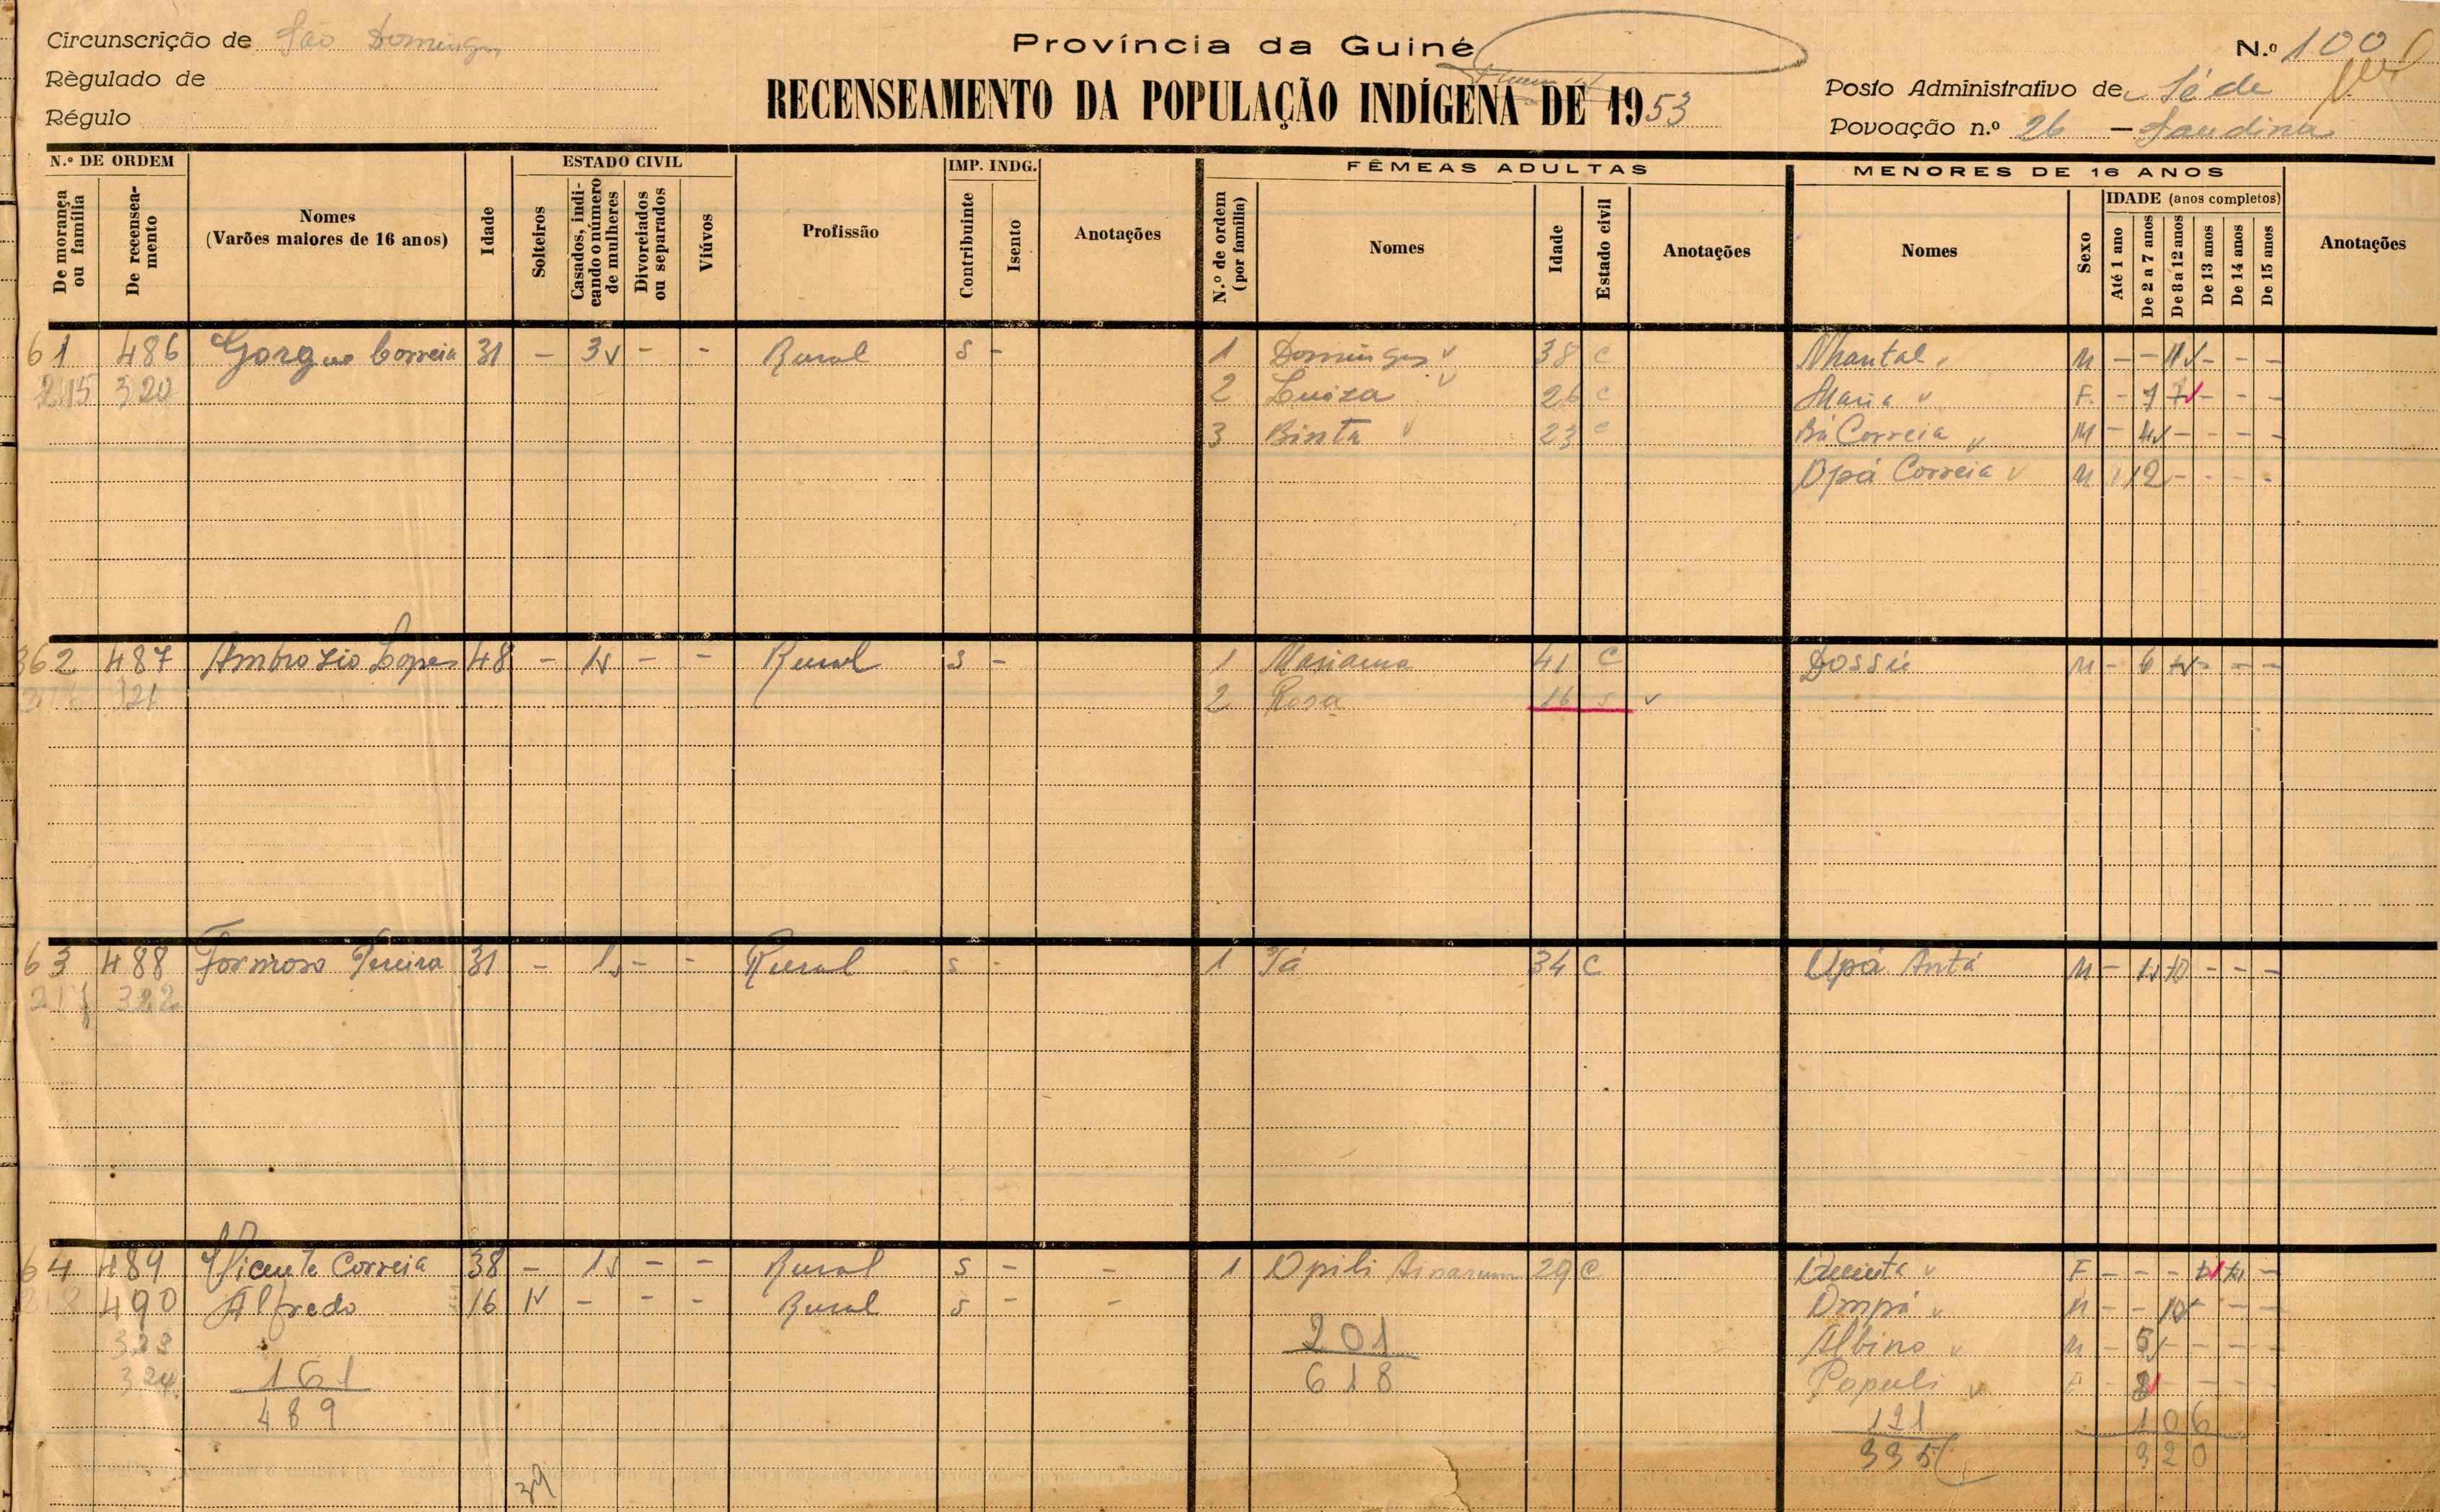 Circunscrição de São Domingos
Règulado de
Régulo
Província da Guiné
RECENSEAMENTO DA POPULAÇÃO INDÍGENA DE 1953
N.º 100
Posto Administrativo de Séde
Povoação n.º 26 —
N.º DE ORDEM
De morança ou família
De recenseamento
Nomes
(Varões maiores de 16 anos)
Idade
ESTADO CIVIL
Solteiros
Casados, indicando o número de mulheres
Divorciados ou separados
Viúvos
Profissão
IMP. INDG.
Contribuinte
Isento
Anotações
FÊMEAS ADULTAS
N.º de ordem (por família)
Nomes
Idade
Estado civil
Anotações
MENORES DE 16 ANOS
Nomes
Sexo
IDADE (anos completos)
Até 1 ano
De 2 a 7 anos
De 8 a 12 anos
De 13 anos
De 14 anos
De 15 anos
Anotações
61 486 Correia 31 - 3 - - Rural S - 1 Domingas 38 C Nhantal M - - 11 - - -
215 320 2 Luiza 26 C Maria F - 7 - - -
3 Binta 23 C Bá Correia M - 4 - - - -
Opá Correia M 2 - - - -
362 487 Ambrozio Lopes 48 - 1 - - Rural S - 1 Mariama 41 C M - 6 - - -
321 2 Rosa 16 S
63 488 Formoso Pereira 31 - 1 - - Rural S - 1 34 C Upá Antá M - - - -
217 322
64 489 Vicente Correia 38 - 1 - - Rural S - - 1 Opili 29 C Quinta F - - - -
490 Alfredo 16 1 - - - Rural S - - Ompá M - - 10 - - -
323 201 Albino M - 5 - - - -
324 161 618 Populi F - - - -
489 121 106
335 320